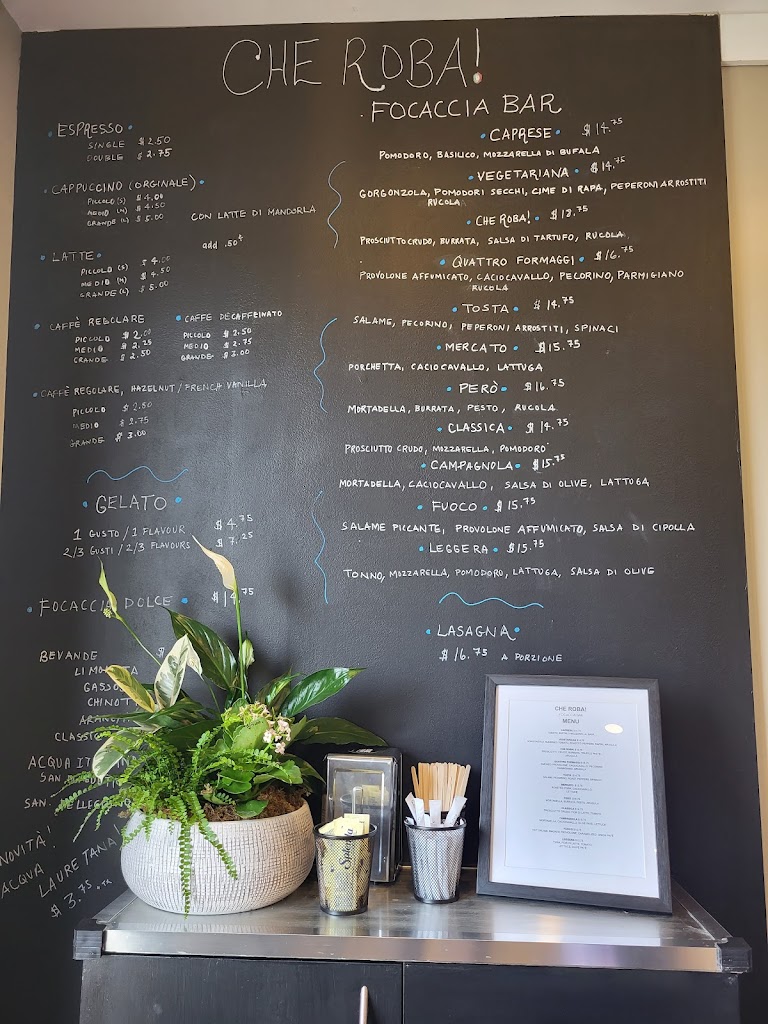 CHE ROBA!
ESPRESSO
SINGLE $2.50
DOUBLE $2.75
CAPPUCCINO (ORGINALE)
PICCOLO (S) $4.00
MEDIO (M) $4.50
GRANDE (L) $5.00
CON LATTE DI MANDORLA
add .50¢
LATTE
PICCOLO (S) $4.00
MEDIO (M) $4.50
GRANDE (L) $5.00
CAFFÈ REGOLARE
PICCOLO $2.00
MEDIO $2.25
GRANDE $2.50
CAFFE DECAFFEINATO
PICCOLO $2.50
MEDIO $2.75
GRANDE $3.00
CAFFÈ REGOLARE, HAZELNUT / FRENCH VANILLA
PICCOLO $2.50
MEDIO $2.75
GRANDE $3.00
GELATO
1 GUSTO / 1 FLAVOUR $4.75
2/3 GUSTI / 2/3 FLAVOURS $7.25
FOCACCIA DOLCE $14.75
BEVANDE
ACQUA
NOVITÀ!
ACQUA
LAURETANA!
$3.75
FOCACCIA BAR
CAPRESE $14.75
POMODORO, BASILICO, MOZZARELLA DI BUFALA
VEGETARIANA $14.75
GORGONZOLA, POMODORI SECCHI, CIME DI RAPA, PEPERONI ARROSTITI
RUCOLA
CHE ROBA! $18.75
PROSCIUTTO CRUDO, BURRATA, SALSA DI TARTUFO, RUCOLA
QUATTRO FORMAGGI $16.75
PROVOLONE AFFUMICATO, CACIOCAVALLO, PECORINO, PARMIGIANO
RUCOLA
TOSTA $14.75
SALAME, PECORINO, PEPERONI ARROSTITI, SPINACI
MERCATO $15.75
PORCHETTA, CACIOCAVALLO, LATTUGA
PERÒ $16.75
MORTADELLA, BURRATA, PESTO, RUCOLA
CLASSICA $14.75
PROSCIUTTO CRUDO, MOZZARELLA, POMODORO
CAMPAGNOLA $15.75
MORTADELLA, CACIOCAVALLO, SALSA DI OLIVE, LATTUGA
FUOCO $15.75
SALAME PICCANTE, PROVOLONE AFFUMICATO, SALSA DI CIPOLLA
LEGGERA $15.75
TONNO, MOZZARELLA, POMODORO, LATTUGA, SALSA DI OLIVE
LASAGNA
$16.75 A PORZIONE
CHE ROBA!
MENU
Splenda